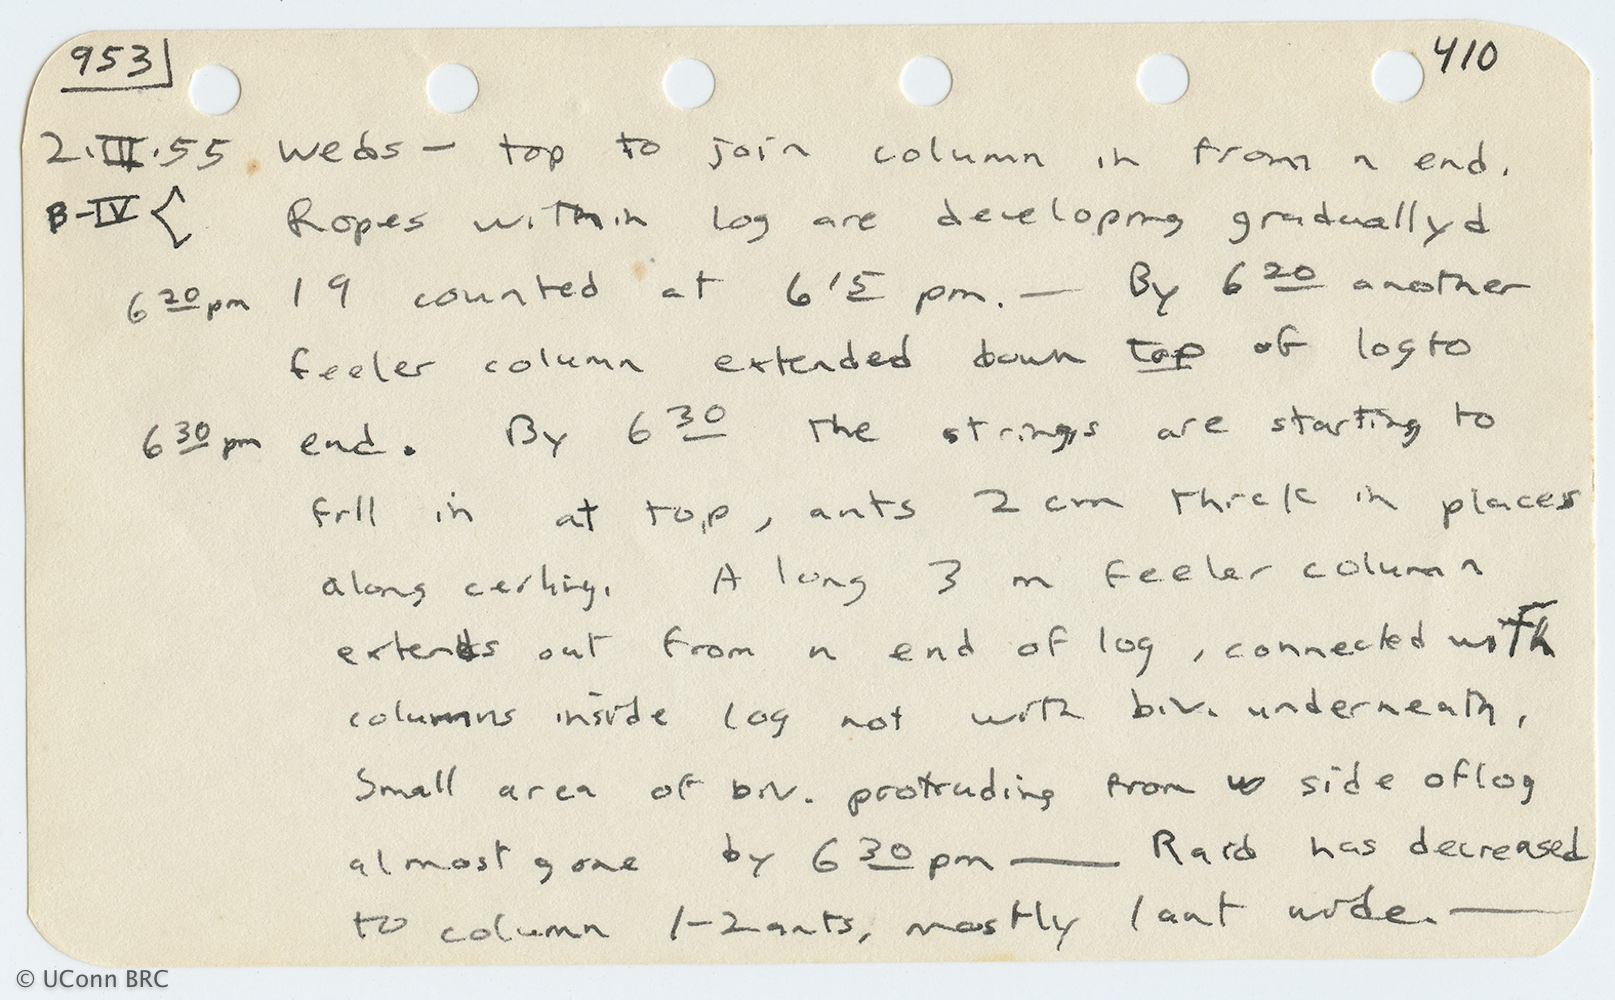 953 410
2.III.55 Weds — top to join column in from n end.
B-IV { Ropes within log are developing gradually &
6 20 pm 19 counted at 6 15 pm. — By 6 20 another
feeler column extended down top of log to
6 30 pm end. By 6 30 the strings are starting to
fill in at top, ants 2 cm thick in places
along ceiling. A long 3 m feeler column
extends out from n end of log, connected with
columns inside log not with biv. underneath,
Small area of biv. protruding from w side of log
almost gone by 6 30 pm — Raid has decreased
to column 1-2 ants, mostly 1 ant wide. —
© UConn BRC